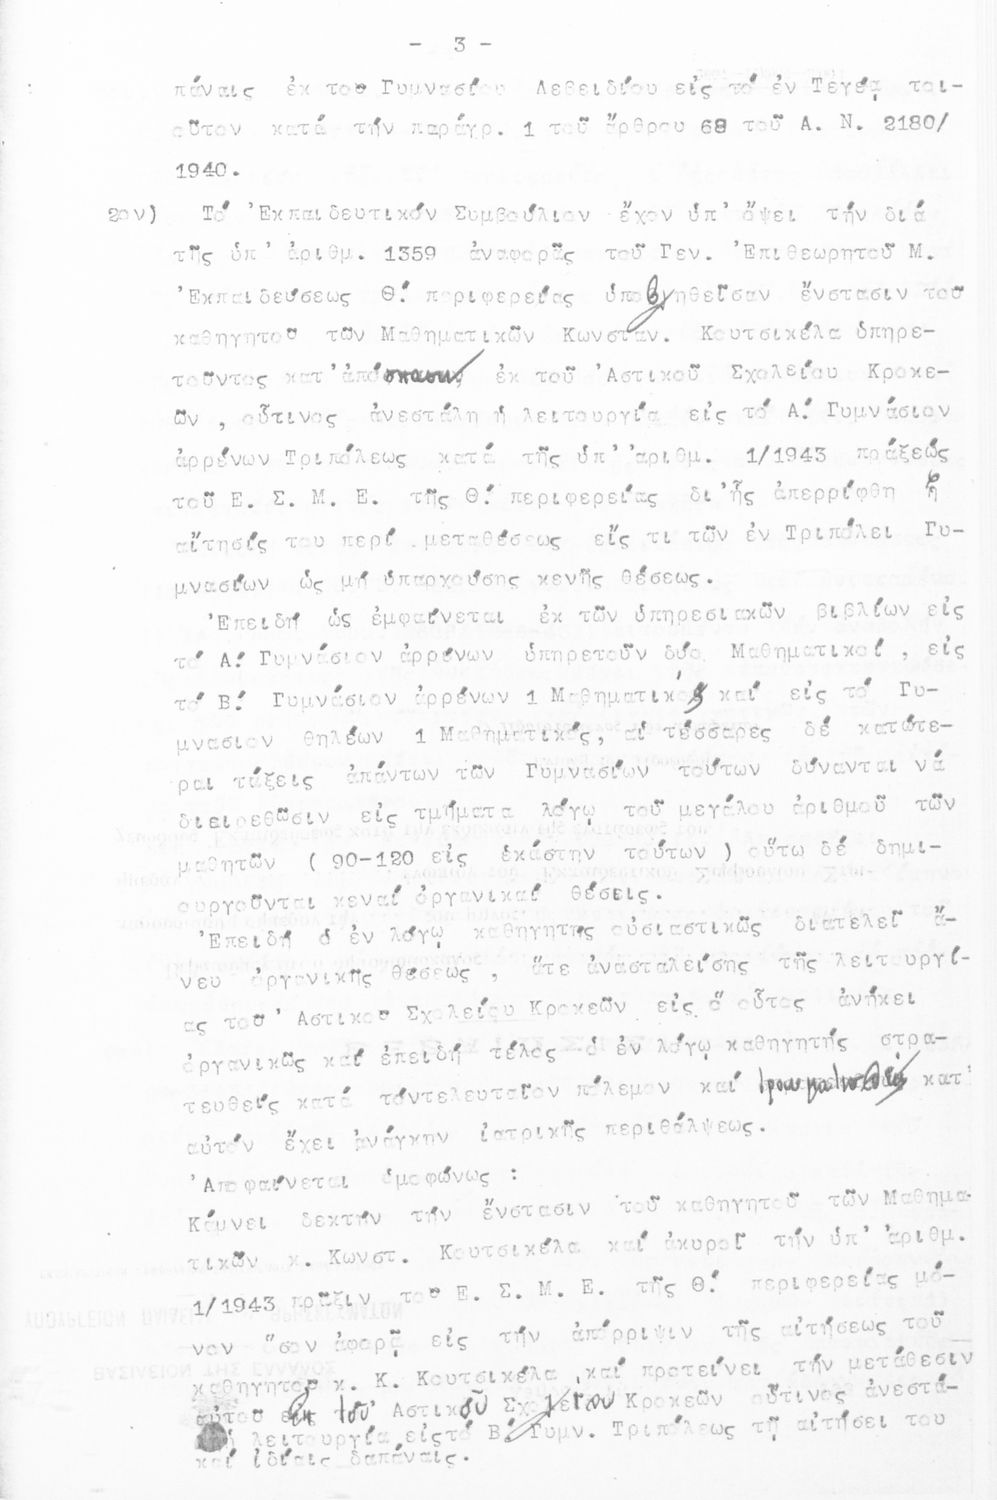 - 3 -
πάναις ἐκ του Γυμνασίου Λεβειδίου εἰς τό ἐν Τεγέᾳ τοι-
οῦτον κατά τήν παράγρ. 1 τοῦ ἄρθρου 68 τοῦ Α. Ν. 2180/
1940.
2ον) Τό Ἐκπαιδευτικόν Συμβούλιον ἔχον ὑπ' ὄψει τήν διά
τῆς ὑπ' ἀριθμ. 1359 ἀναφορᾶς τοῦ Γεν. Ἐπιθεωρητοῦ Μ.
Ἐκπαιδεύσεως Θ! περιφερείας ὑποβληθεῖσαν ἔνστασιν τοῦ
καθηγητοῦ τῶν Μαθηματικῶν Κωνσταν. Κουτσικέλα ὑπηρε-
τοῦντος κατ' ἀπόσπασιν ἐκ τοῦ Ἀστικοῦ Σχολείου Κροκε-
ῶν , οὗτινος ἀνεστάλη ἡ λειτουργία εἰς τό Α! Γυμνάσιον
ἀρρένων Τριπόλεως κατά τῆς ὑπ' ἀριθμ. 1/1943 πράξεώς
τοῦ Ε. Σ. Μ. Ε. τῆς Θ! περιφερείας δι' ἧς ἀπερρίφθη ἡ
αἴτησίς του περί μεταθέσεως εἴς τι τῶν ἐν Τριπόλει Γυ-
μνασίων ὡς μή ὑπαρχούσης κενῆς θέσεως.
Ἐπειδή ὡς ἐμφαίνεται ἐκ τῶν ὑπηρεσιακῶν βιβλίων εἰς
τό Α! Γυμνάσιον ἀρρένων ὑπηρετοῦν δύο Μαθηματικοί , εἰς
τό Β! Γυμνάσιον ἀρρένων 1 Μαθηματικός καί εἰς τό Γυ-
μνασιον θηλέων 1 Μαθηματικός, αἱ τέσσαρες δέ κατώτε-
ραι τάξεις ἁπάντων τῶν Γυμνασίων τούτων δύνανται νά
διαιρεθῶσιν εἰς τμήματα λόγῳ τοῦ μεγάλου ἀριθμοῦ τῶν
μαθητῶν ( 90-120 εἰς ἑκάστην τούτων ) οὕτω δέ δημι-
ουργοῦνται κεναί ὀργανικαί θέσεις.
Ἐπειδή ὁ ἐν λόγῳ καθηγητής οὐσιαστικῶς διατελεῖ ἄ-
νευ ὀργανικῆς θέσεως , ἅτε ἀνασταλείσης τῆς λειτουργί-
ας του Ἀστικου Σχολείου Κροκεῶν εἰς ὅ οὗτος ἀνήκει
ὀργανικῶς καί ἐπειδή τέλος ὁ ἐν λόγῳ καθηγητής στρα-
τευθείς κατά τόντελευταῖον πόλεμον καί τραυματισθείς κατ'
αὐτόν ἔχει ἀνάγκην ἰατρικῆς περιθάλψεως.
Ἀποφαίνεται ὁμοφώνως :
Κάμνει δεκτήν τήν ἔνστασιν τοῦ καθηγητοῦ τῶν Μαθημα-
τικῶν κ. Κωνστ. Κουτσικέλα καί ἀκυροῖ τήν ὑπ' ἀριθμ.
1/1943 πρᾶξιν τοῦ Ε. Σ. Μ. Ε. τῆς Θ! περιφερείας μό-
νον ὅσον ἀφορᾷ εἰς τήν ἀπόρριψιν τῆς αἰτήσεως τοῦ
καθηγητοῦ κ. Κ. Κουτσικέλα ,καί προτείνει τήν μετάθεσιν
αὐτοῦ ἐκ τοῦ Ἀστικοῦ Σχολείου Κροκεῶν οὗτινος ἀνεστά-
ἡ λειτουργία εἰςτό Β! Γυμν. Τριπόλεως τῇ αἰτήσει του
καί ἰδίαις δαπάναις.